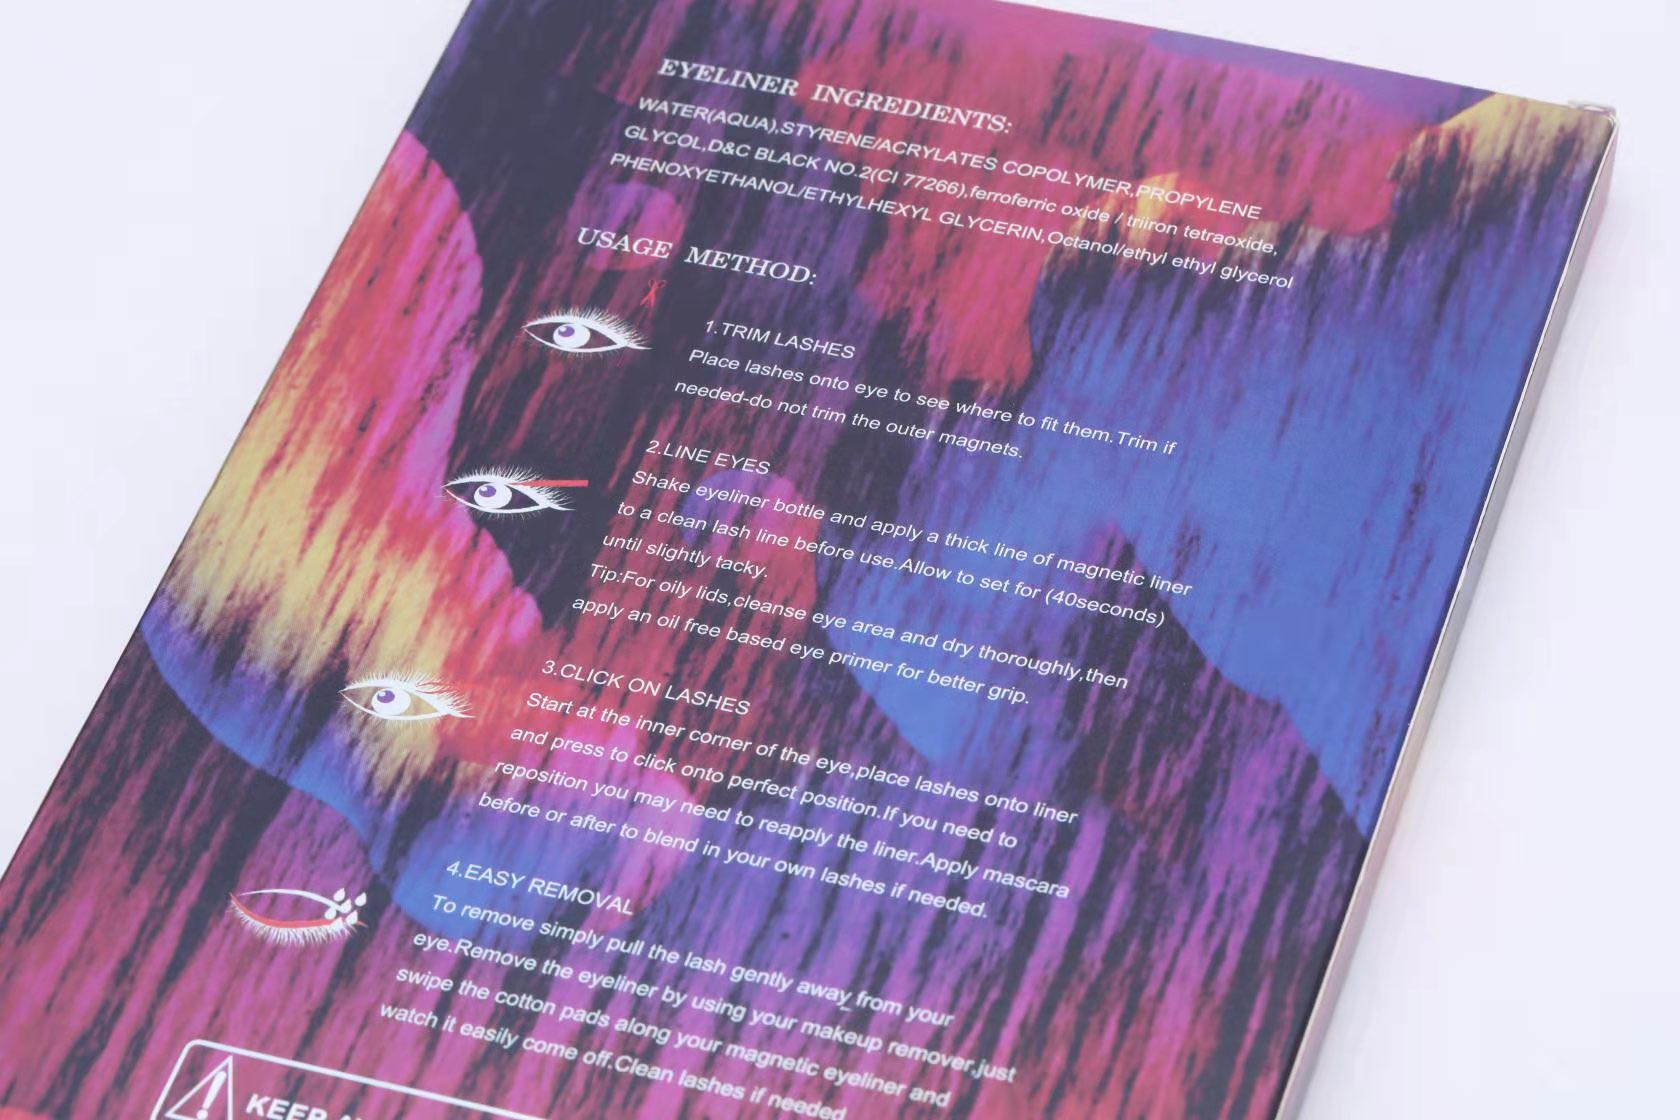 EYELINER INGREDIENTS:
WATER(AQUA),STYRENE/ACRYLATES COPOLYMER,PROPYLENE
GLYCOL,D&C BLACK NO.2(CI 77266),ferroferric oxide / triiron tetraoxide,
PHENOXYETHANOL/ETHYLHEXYL GLYCERIN,Octanol/ethyl ethyl glycerol
USAGE METHOD:
1.TRIM LASHES
Place lashes onto eye to see where to fit them.Trim if
needed-do not trim the outer magnets.
2.LINE EYES
Shake eyeliner bottle and apply a thick line of magnetic liner
to a clean lash line before use.Allow to set for (40seconds)
until slightly tacky.
Tip:For oily lids,cleanse eye area and dry thoroughly,then
apply an oil free based eye primer for better grip.
3.CLICK ON LASHES
Start at the inner corner of the eye,place lashes onto liner
and press to click onto perfect position.If you need to
reposition you may need to reapply the liner.Apply mascara
before or after to blend in your own lashes if needed.
4.EASY REMOVAL
To remove simply pull the lash gently away from your
eye.Remove the eyeliner by using your makeup remover,just
swipe the cotton pads along your magnetic eyeliner and
watch it easily come off.Clean lashes if needed
KEEP